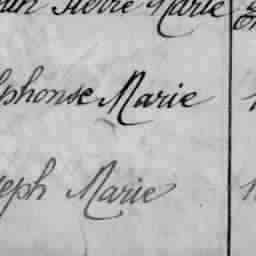 Pierre Marie
lphonse Marie
seph Marie